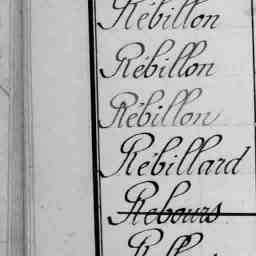 Rébillon
Rébillon
Rébillon
Rébillard
Rebours